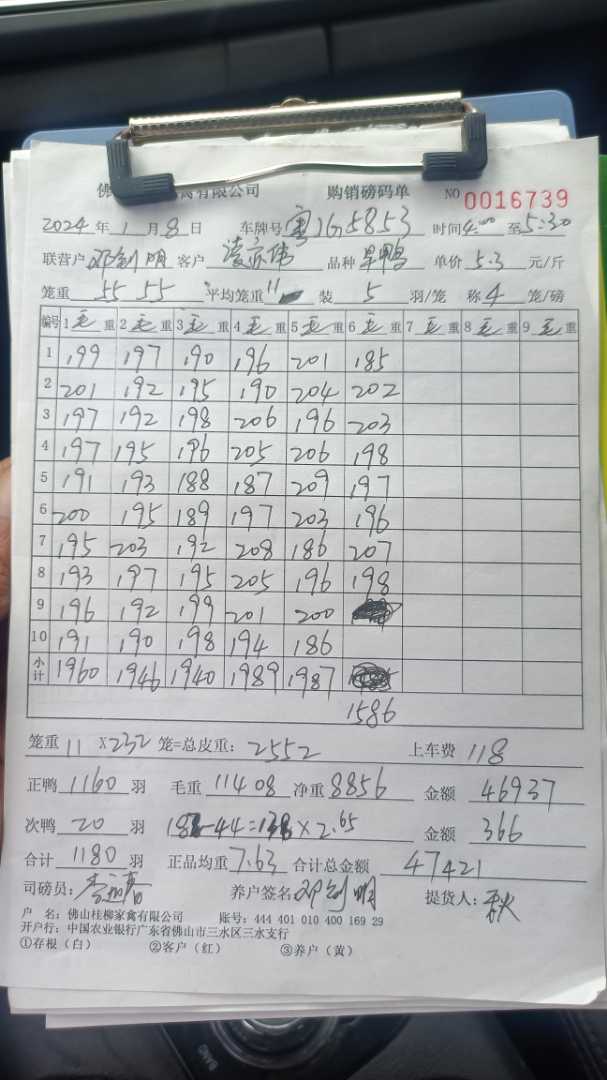 佛 禽有限公司 购销磅码单 NO 0016739
2024 年 1 月 8 日 车牌号 粤 G5853 时间 4:00 至 5:30
联营户 邓剑明 客户 凌 伟 品种 旱鸭 单价 5.3 元/斤
笼重 55 55 平均笼重 11 装 5 羽/笼 称 4 笼/磅
编号 1 毛 重 2 毛 重 3 毛 重 4 毛 重 5 毛 重 6 毛 重 7 毛 重 8 毛 重 9 毛 重
1 199 197 190 196 201 185
2 201 192 195 190 204 202
3 197 192 198 206 196 203
4 197 195 196 205 206 198
5 191 193 188 187 209 197
6 200 195 189 197 203 196
7 195 203 192 208 186 207
8 193 197 195 205 196 198
9 196 192 199 201 200
10 191 190 198 194 186
小计 1960 1946 1940 1989 1987
1586
笼重 11 X 232 笼=总皮重: 2552 上车费 118
正鸭 1160 羽 毛重 11408 净重 8856 金额 46937
次鸭 20 羽 182-44=138×2.65 金额 366
合计 1180 羽 正品均重 7.63 合计总金额 47421
司磅员: 养户签名: 邓剑明 提货人: 秋
户 名: 佛山桂柳家禽有限公司 账号: 444 401 010 400 169 29
开户行: 中国农业银行广东省佛山市三水区三水支行
①存根（白） ②客户（红） ③养户（黄）
BANG